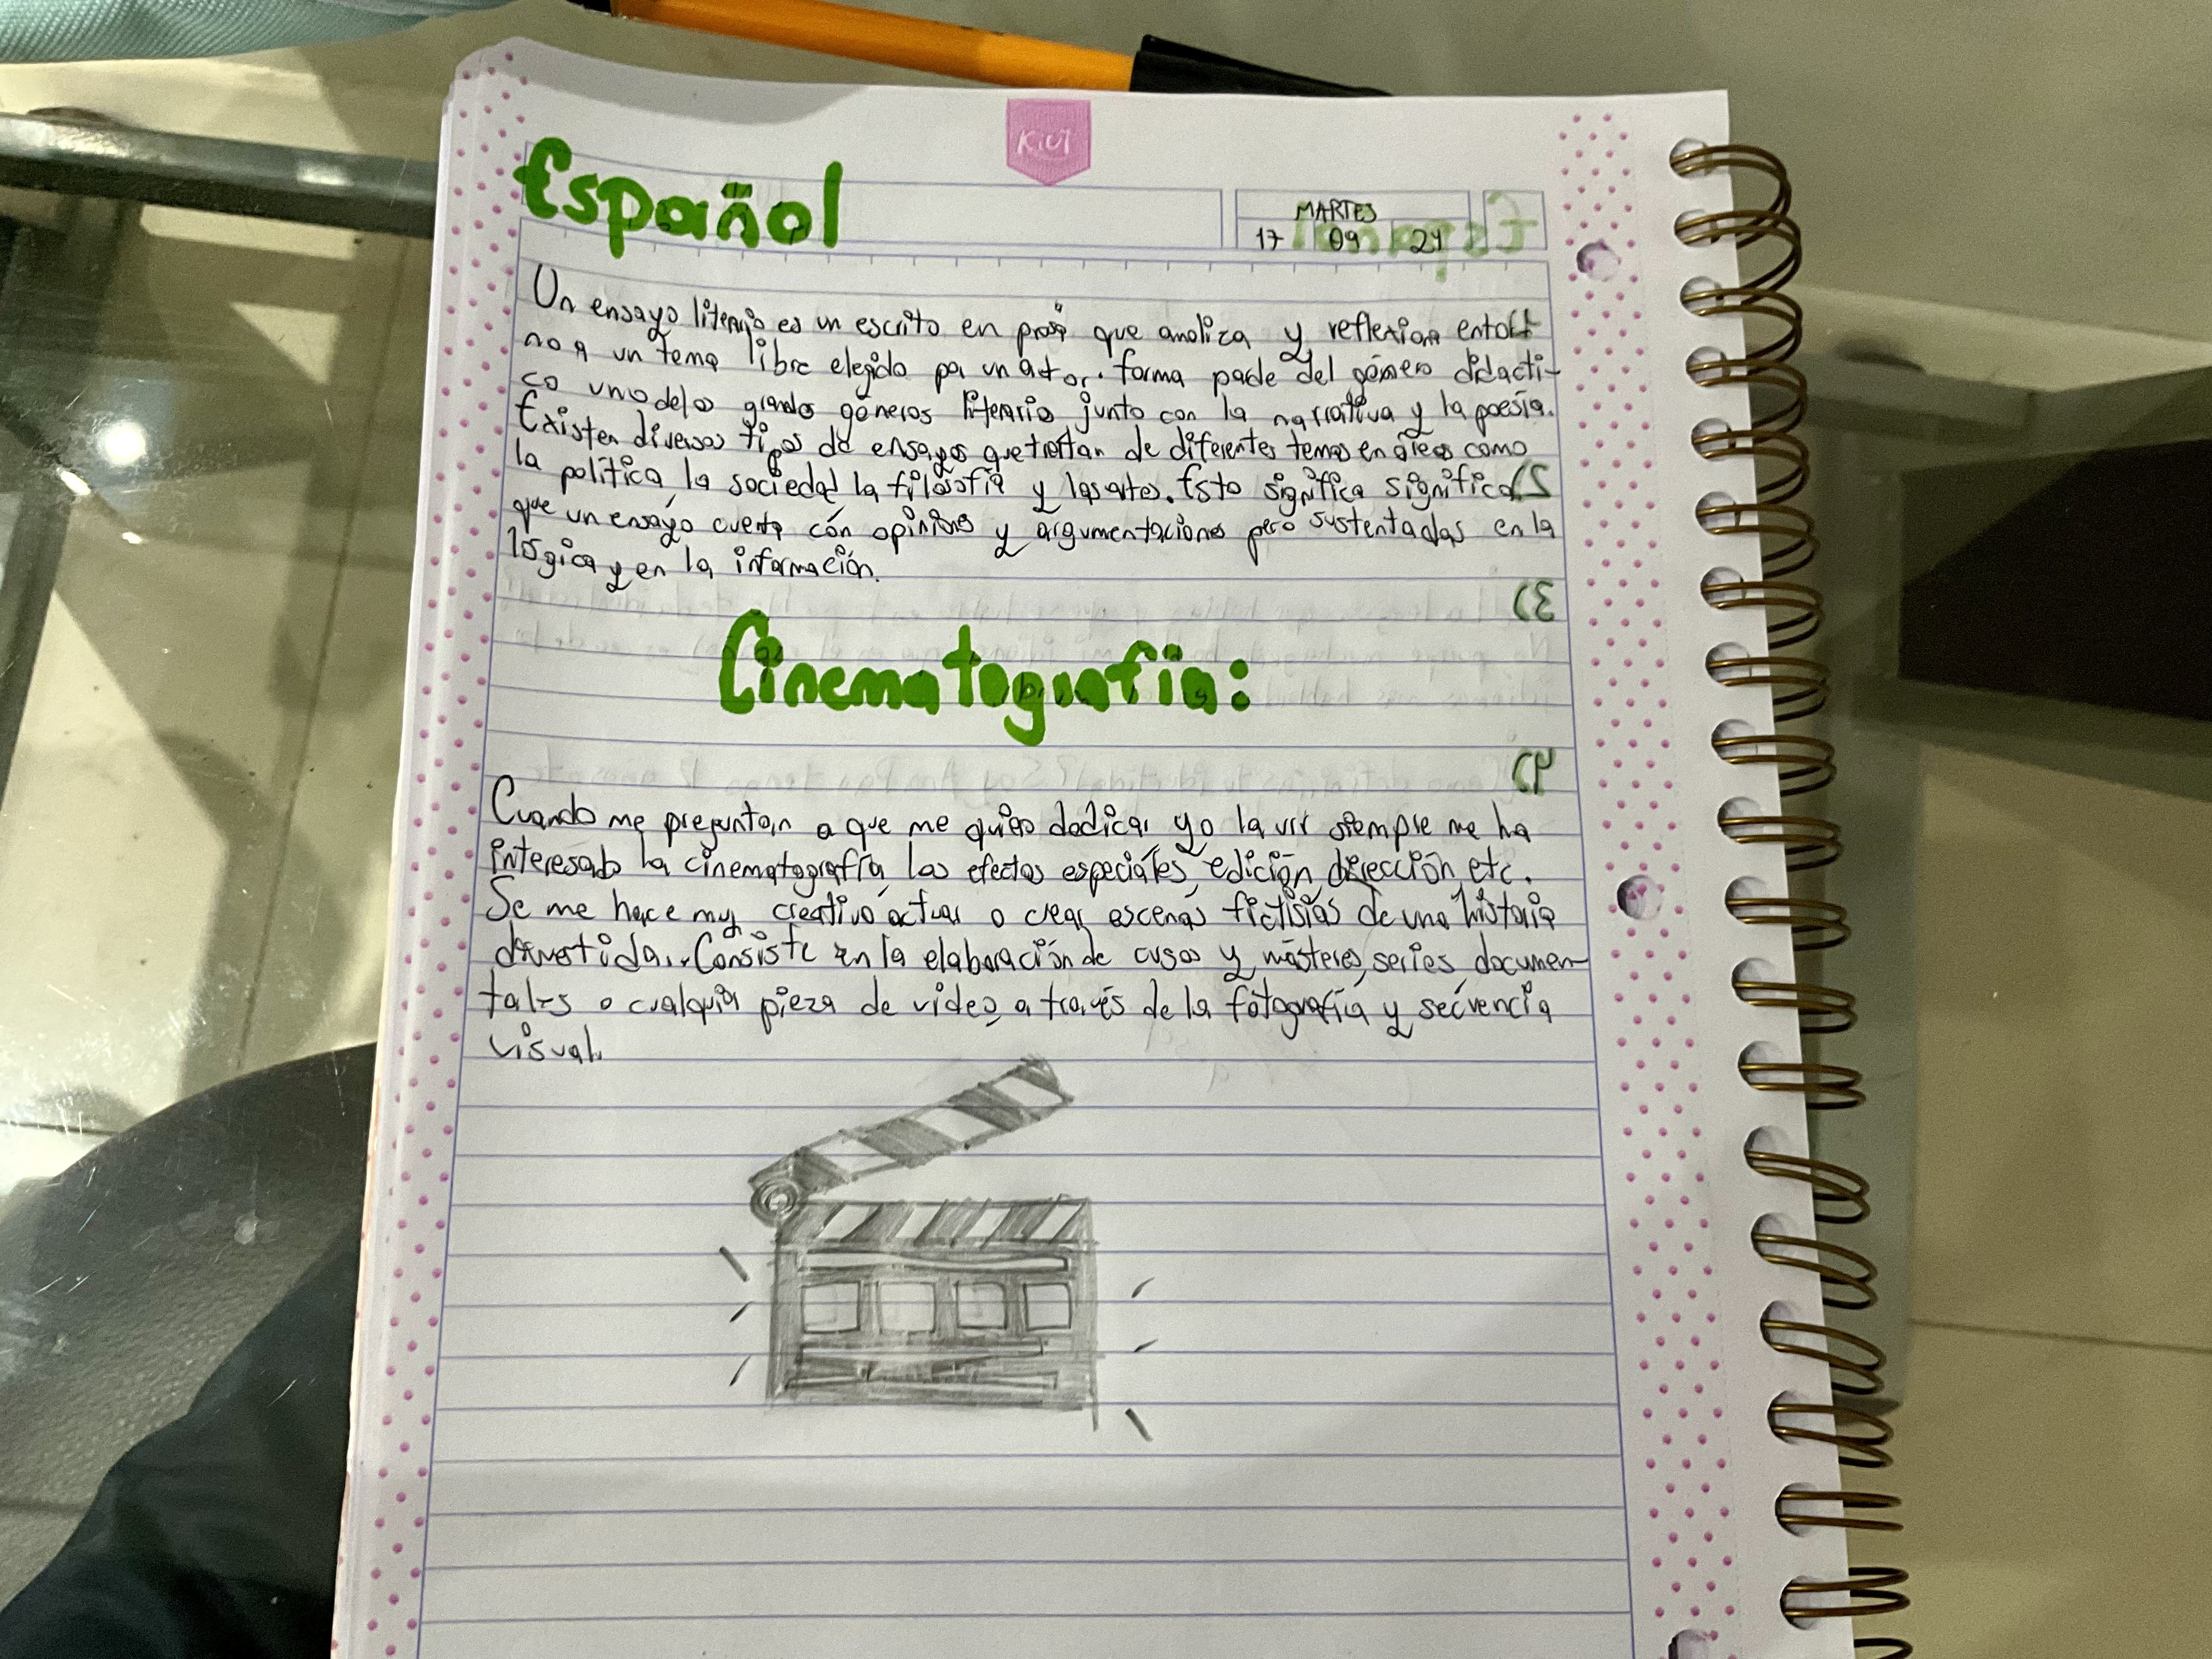 Kiut
Español
MARTES
17 09 24
Un ensayo literario es un escrito en prosa que analiza y reflexiona entor
no a un tema libre elegido por un autor. forma parte del género didacti-
co uno delos grandes géneros literario junto con la narrativa y la poesía.
Existen diversos tipos de ensayos que tratan de diferentes temas en áreas como
la política, la sociedad, la filosofía y las artes. Esto significa significa
que un ensayo cuenta con opiniones y argumentaciones pero sustentadas en la
lógica y en la información.
Cinematografía:
Cuando me preguntan a que me quiero dedicar yo siempre me ha
interesado la cinematografía, los efectos especiales, edición, dirección, etc.
Se me hace muy creativo actuar o crear escenas fictisias de una historia
divertida. Consiste en la elaboración de cusos y másteres, series documen-
tales o cualquier pieza de video, a través de la fotografía y secuencia
visual.